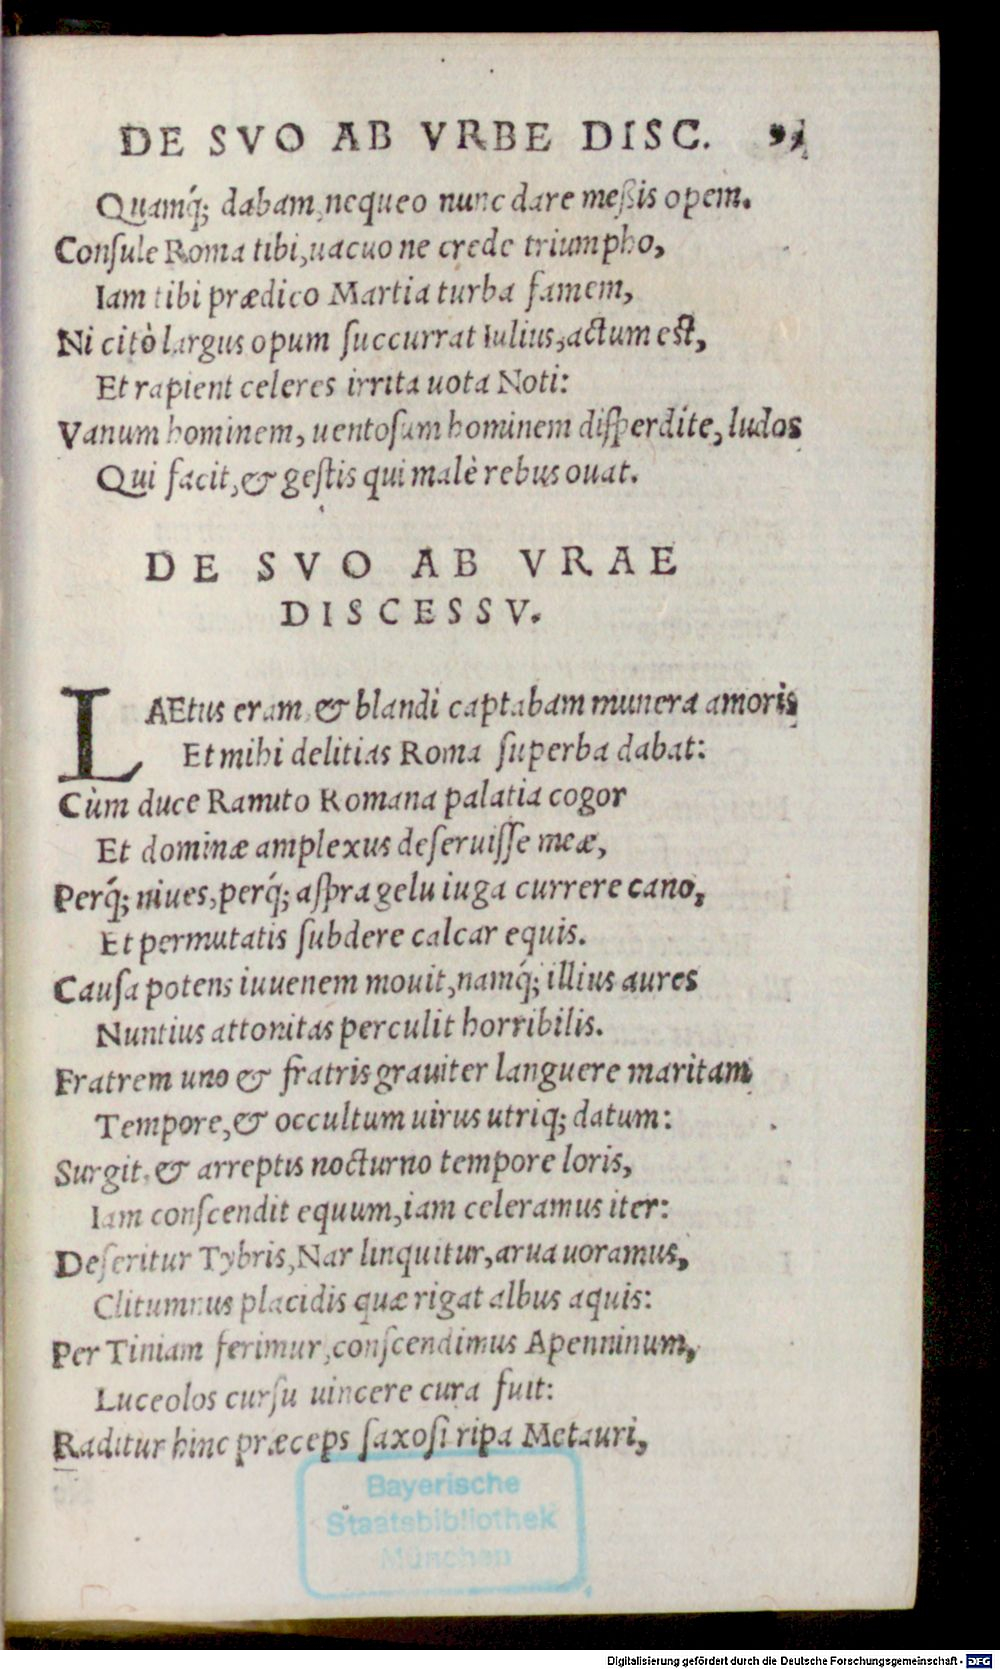 DE SVO AB VRBE DISC.
Quamq́; dabam, nequeo nunc dare meßis opem.
Conſule Roma tibi, uacuo ne crede triumpho,
Iam tibi prædico Martia turba famem,
Ni citò largus opum ſuccurrat Iulius, actum est,
Et rapient celeres irrita uota Noti:
Vanum hominem, uentoſum hominem diſperdite, ludos
Qui facit, & geſtis qui malè rebus ouat.
DE SVO AB VRAE
DISCESSV.
LAEtus eram, & blandi captabam munera amoris
Et mihi delitias Roma ſuperba dabat:
Cùm duce Ranuto Romana palatia cogor
Et dominæ amplexus deſeruiſſe meæ,
Perq́; niues, perq́; aſpra gelu iuga currere cano,
Et permutatis ſubdere calcar equis.
Cauſa potens iuuenem mouit, namq́; illius aures
Nuntius attonitas perculit horribilis.
Fratrem uno & fratris grauiter languere maritam
Tempore, & occultum uirus utriq; datum:
Surgit, & arreptis nocturno tempore loris,
Iam conſcendit equum, iam celeramus iter:
Deſeritur Tybris, Nar linquitur, arua uoramus,
Clitumnus placidis quæ rigat albus aquis:
Per Tiniam ferimur, conſcendimus Apenninum,
Luceolos curſu uincere cura fuit:
Raditur hinc præceps ſaxoſi ripa Metauri,
Bayerische
Staatsbibliothek
München
Digitalisierung gefördert durch die Deutsche Forschungsgemeinschaft - DFG